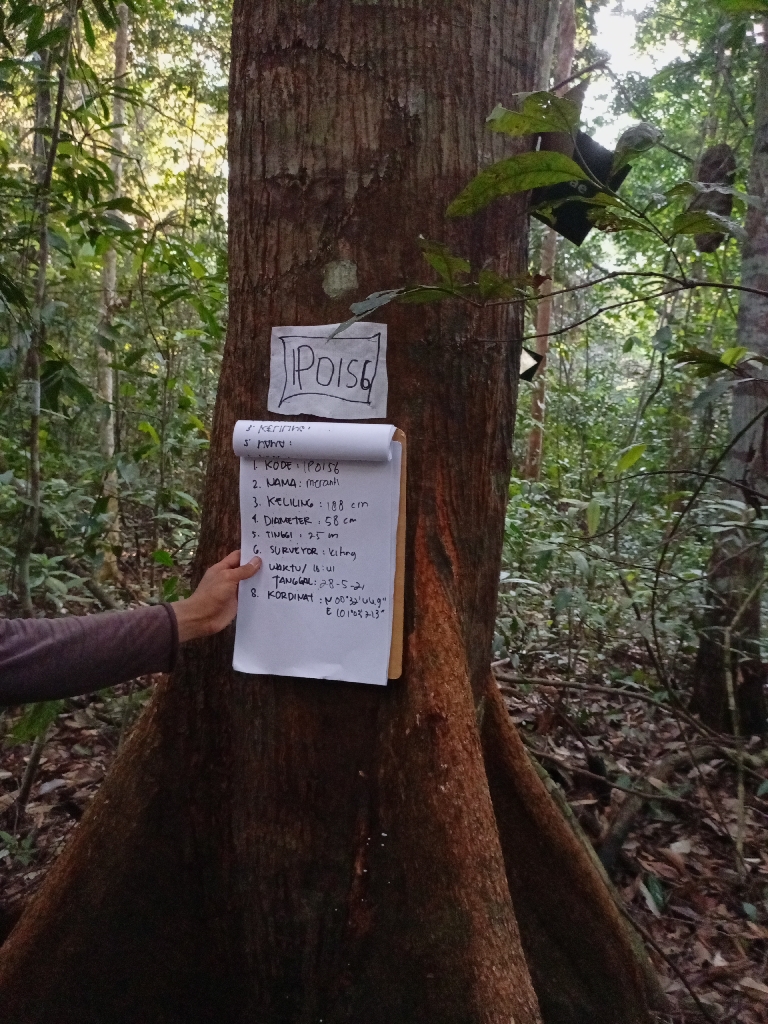 IPO156
5. NAMA :
1. KODE : IPO156
2. NAMA : meranti
3. KELILING : 188 cm
4. DIAMETER : 58 cm
5. TINGGI : 25 m
6. SURVEYOR :
WAKTU/
TANGGAL : 28-5-21
8. KORDINAT : N 00°32'
E 101°